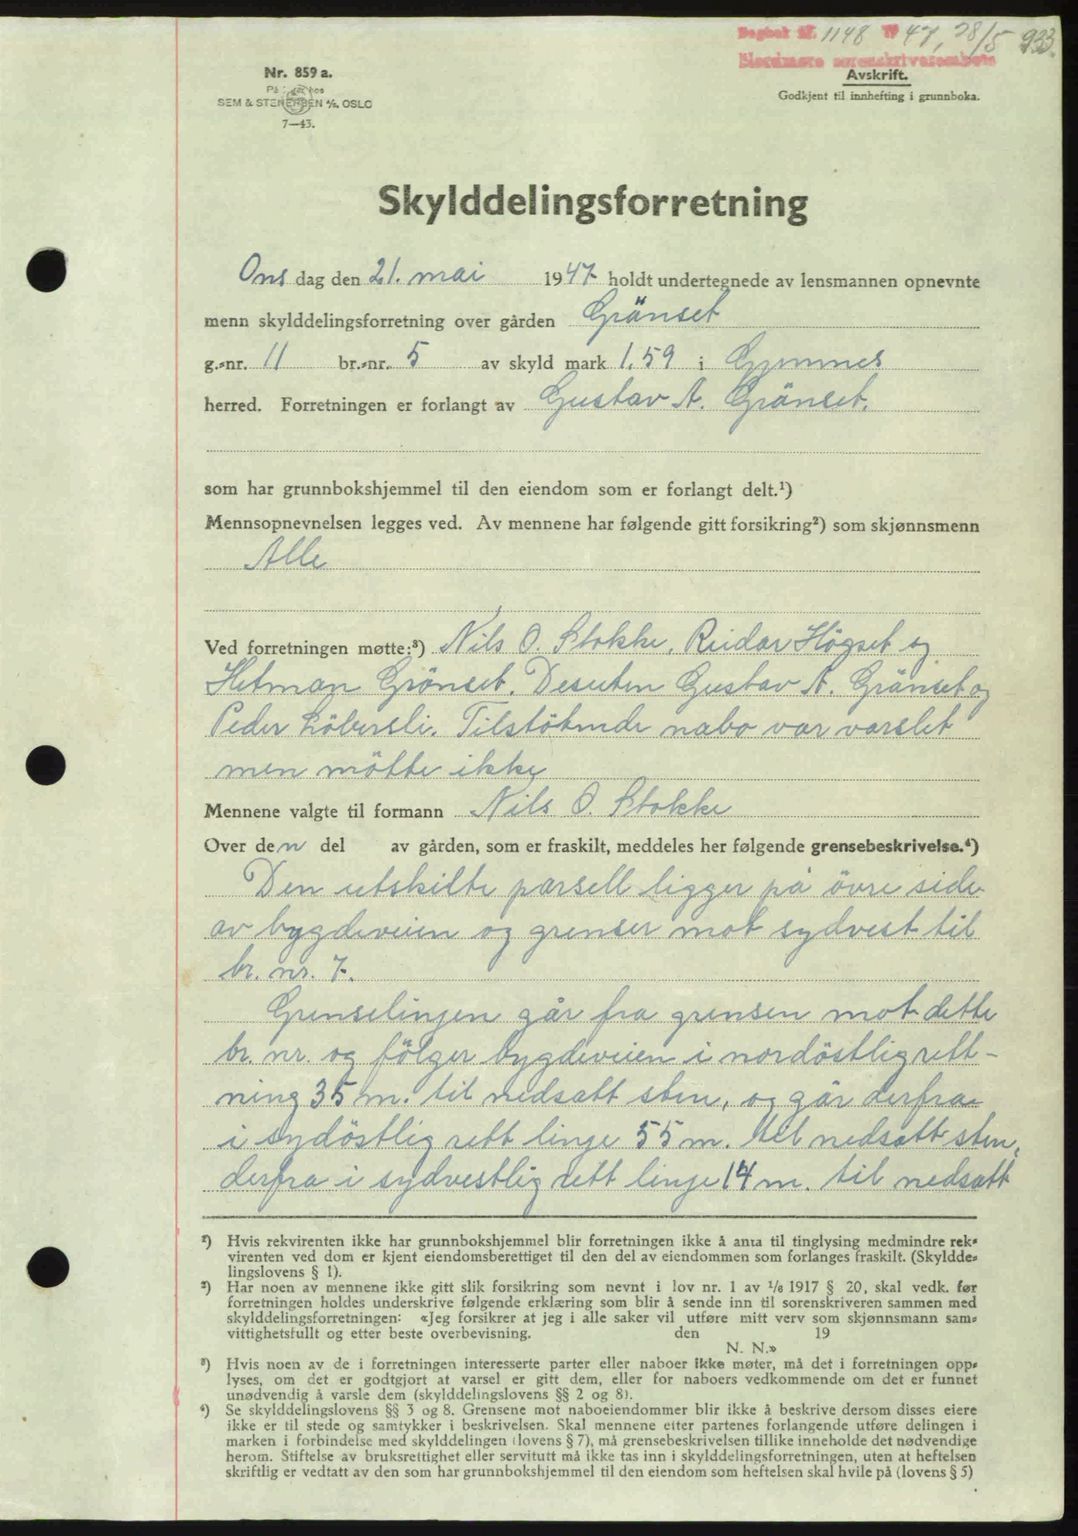 Dagbok nr. 1148 19 47, 28/5 933.
Nordmøre sorenskriverembete
Nr. 859 a.
SEM & STENERSEN A/S. OSLO
7—43.
Avskrift.
Godkjent til innhefting i grunnboka.
Skylddelingsforretning
Ons dag den 21. mai 1947 holdt undertegnede av lensmannen opnevnte
menn skylddelingsforretning over gården Gränset
g.-nr. 11 br.-nr. 5 av skyld mark 1,59 i Gjemnes
herred. Forretningen er forlangt av Gustav A. Gränset.
som har grunnbokshjemmel til den eiendom som er forlangt delt.¹)
Mennsopnevnelsen legges ved. Av mennene har følgende gitt forsikring²) som skjønnsmenn
Alle
Ved forretningen møtte:³) Nils O. Stokke, Reidar Högset og
Hetman Grönset. Desuten Gustav A. Gränset og
Peder Löbersli. Tilstötende nabo var varslet
men mötte ikke
Mennene valgte til formann Nils O. Stokke
Over den del av gården, som er fraskilt, meddeles her følgende grensebeskrivelse.⁴)
Den utskilte parsell ligger på övre side
av bygdeveien og grenser mot sydvest til
br. nr. 7.
Grenselinjen går fra grensen mot dette
br. nr. og fölger bygdeveien i nordöstlig rett-
ning 35 m. til nedsatt sten, og går derfra
i sydöstlig rett linje 55 m. til nedsatt sten,
derfra i sydvestlig rett linje 14 m. til nedsatt
¹) Hvis rekvirenten ikke har grunnbokshjemmel blir forretningen ikke å anta til tinglysing medmindre rek-
virenten ved dom er kjent eiendomsberettiget til den del av eiendommen som forlanges fraskilt. (Skyldde-
lingslovens § 1).
²) Har noen av mennene ikke gitt slik forsikring som nevnt i lov nr. 1 av 1/6 1917 § 20, skal vedk. før
forretningen holdes underskrive følgende erklæring som blir å sende inn til sorenskriveren sammen med
skylddelingsforretningen: «Jeg forsikrer at jeg i alle saker vil utføre mitt verv som skjønnsmann sam-
vittighetsfullt og etter beste overbevisning. den 19
N. N.»
³) Hvis noen av de i forretningen interesserte parter eller naboer ikke møter, må det i forretningen opp-
lyses, om det er godtgjort at varsel er gitt dem, eller for naboers vedkommende om det er funnet
unødvendig å varsle dem (skylddelingslovens §§ 2 og 8).
⁴) Se skylddelingslovens §§ 3 og 8. Grensene mot naboeiendommer blir ikke å beskrive dersom disses eiere
ikke er til stede og samtykker i beskrivelsen. Skal mennene etter partenes forlangende utføre delingen i
marken i forbindelse med skylddelingen (lovens § 7), må grensebeskrivelsen tillike inneholde det nødvendige
herom. Stiftelse av bruksrettighet eller servitutt må ikke tas inn i skylddelingsforretningen, uten at heftelsen
skriftlig er vedtatt av den som har grunnbokshjemmel til den eiendom som heftelsen skal hvile på (lovens § 5)